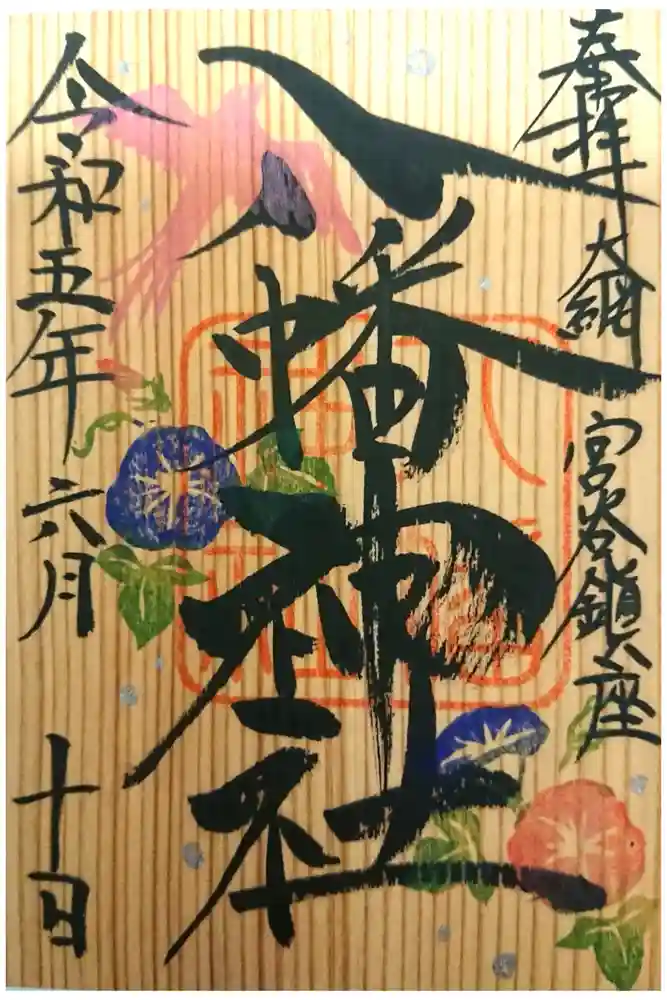 奉拝 大綱 宮谷鎮座
八幡神社
令和五年 六月 十日